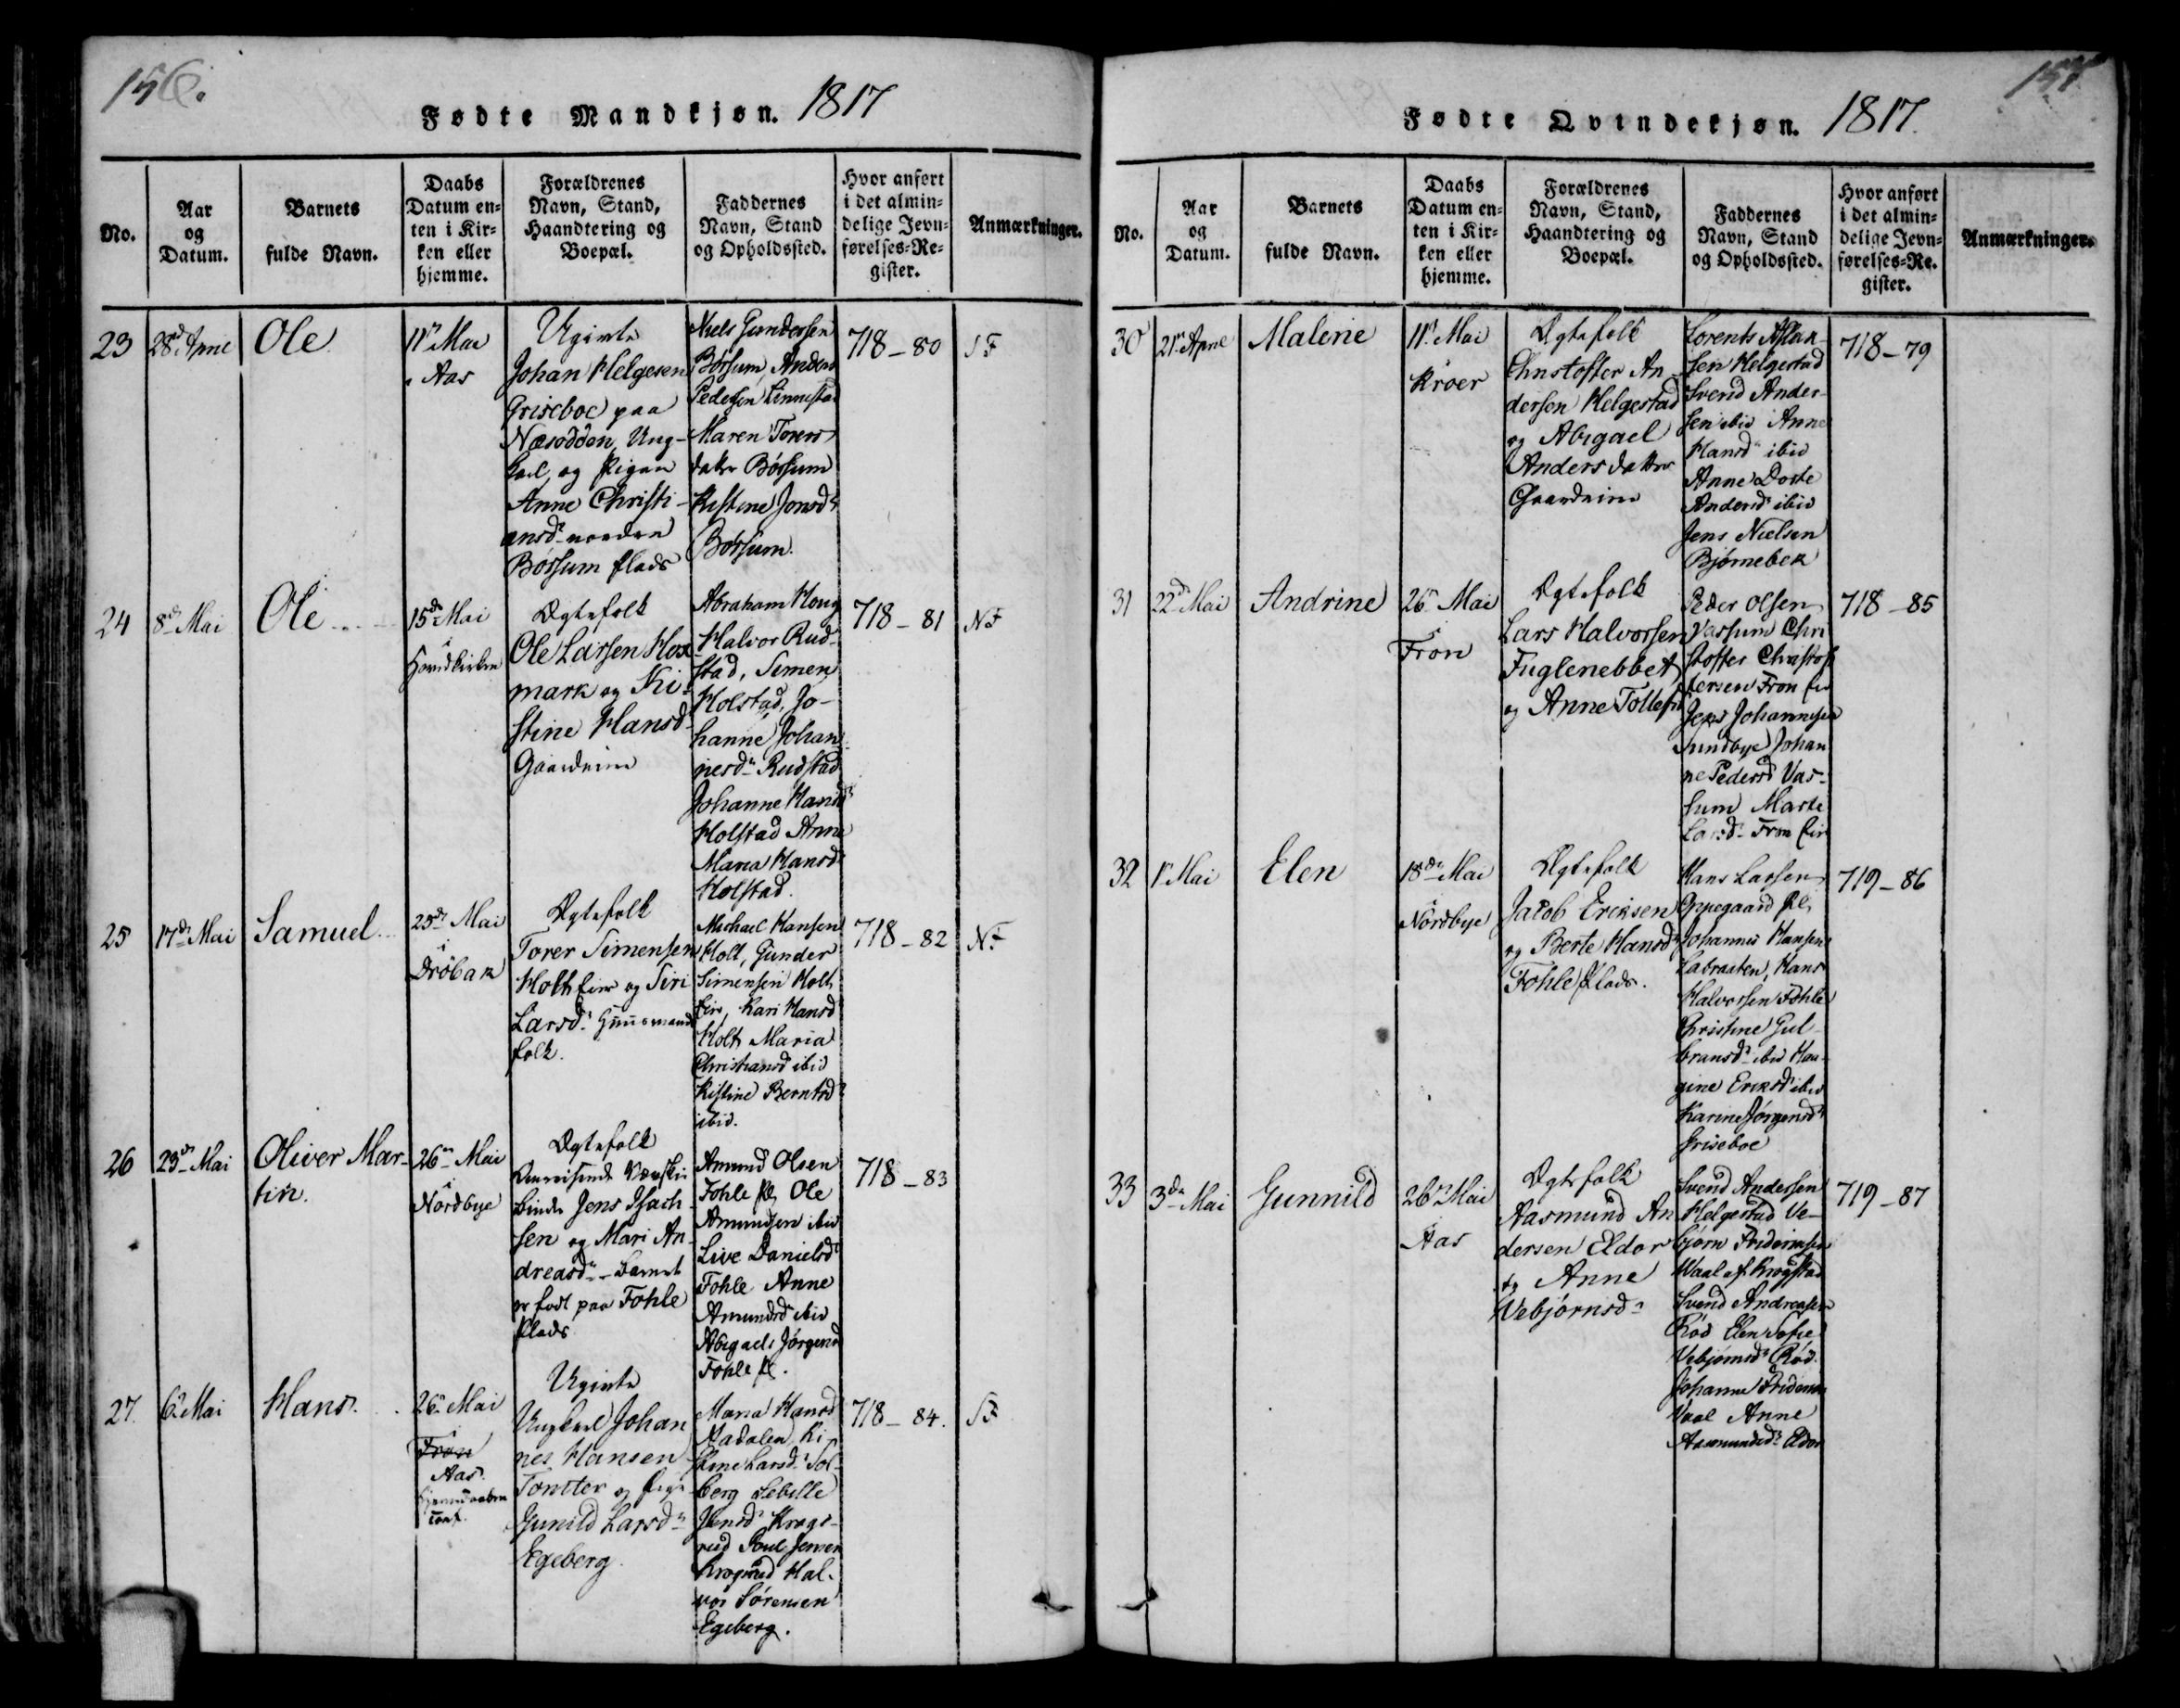 156.
Fødte Mandkjøn. 1817
No.
Aar
og
Datum.
Barnets
fulde Navn.
Daabs
Datum en-
ten i Kir-
ken eller
hjemme.
Forældrenes
Navn, Stand,
Haandtering og
Boepæl.
Faddernes
Navn, Stand
og Opholdssted.
Hvor anført
i det almin-
delige Jevn-
førelses-Re-
gister.
Anmærkninger.
23
28d Apric
Ole
11n Mai
i Aas
Ugivte
Johan Helgesen
Griseboe paa
Næsodden, Ung-
karl, og Pigen
Anne Christi-
ansdr nordre
Børsum Plads
Niels Gundersen
Børsum, Anders
Pedersen
Maren Torers
datter Børsum
Kistine Jonsdr
Børsum.
718 - 80
SF
24
8de Mai
Ole
15de Mai
i
Hovedkirken
Ægtefolk
Ole Larsen Hox
mark og Ki-
stine Hansd
Gaardeiere
Abraham Houg
Halvor Rud-
stad, Simen
Holstad, Jo-
hanne Johan-
nesdr Rudstad
Johanne Hansdr
Holstad Anne
Maria Hansdr
Holstad.
718 - 81
NF
25
17de Mai
Samuel
25de Mai
i
Drøbak
Ægtefolk
Torer Simensen
Holth Eier og Siri
Larsdr Huusmand
folk.
Michael Hansen
Holt, Gunder
Simensen Holt
Eier, Kari Hansd
Holt Maria
Christiansd ibid
Kistine Berntsdr
ibid.
718 - 82
NF
26
23de Mai
Oliver Mar-
tin.
26n Mai
i
Nordbye
Ægtefolk
Omreisende Vævskee
binder Jens Isach-
sen og Mari An-
dreasdr - Barnet
er født paa Fohle
Plads
Amund Olsen
Fohle Pl, Ole
Amundsen ibid
Live Danielsdr
Fohle Anne
Amundsdr ibid
Abigaele Jørgensd
Fohle Pl.
718 - 83
27.
6te Mai
Hans.
26n Mai
i
Fron
Aas.
hjemmedøbt
conf.
Ugivte
Ungkarl Johan
nes Hansen
Tomter og Pige
Gunild Larsdr
Egeberg.
Maria Hansd
Aadalen Ki-
stine Larsdr Sol-
berg Sebille
Jensdr Krogs-
rud Poul Jensen
Krogsrud Hal-
vor Sørensen
Egeberg.
718 - 84.
SF
157
Fødte Qvindekjøn. 1817.
No.
Aar
og
Datum.
Barnets
fulde Navn.
Daabs
Datum en-
ten i Kir-
ken eller
hjemme.
Forældrenes
Navn, Stand,
Haandtering og
Boepæl.
Faddernes
Navn, Stand
og Opholdssted.
Hvor anført
i det almin-
delige Jevn-
førelses-Re-
gister.
Anmærkninger.
30
21n Apric
Malene
11n Mai
i
Kroer
Ægtefolk
Christoffer An-
dersen Helgestad
og Abigael
Andersdatter
Gaardeiere
Lorents Aslak-
sen Helgestad
Svend Ander-
sen ibid Anne
Hansdr ibid
Anne Dorte
Andersdr ibid
Jens Nielsen
Bjørnebek
718 - 79
31
22de Mai
Andrine
26n Mai
i
Fron
Ægtefolk
Lars Halvorsen
Fuglenebbet
og Anne Tollefsd
Peder Olsen
Vassum Chri
stoffer Christof
fersen Fron Eie
Jens Johannesen
Sundbye, Johan
ne Pedersdr Vas-
sum Marte
Larsdr Fron Eie
718 - 85
32
1n Mai
Elen
18de Mai
i
Nordbye
Ægtefolk
Jacob Ericksen
og Berte Hansdr
Fohle Plads.
Hans Larsen
Oppegaard Pl,
Johannes Hansen
Labraaten, Hans
Halvorsen Fohle
Christine Gul-
bransdr ibid Haa-
gine Ericksdr ibid
Karine Jørgensdr
Griseboe
719 - 86
33
3de Mai
Gunnild
26n Mai
i
Aas
Ægtefolk
Aasmund An
dersen Eldor
og Anne
Vebjørnsdr
Svend Andersen
Helgestad Ve-
bjørn Fridericksen
Waal af Krogstad
Svend Andreasen
Rød Elen Sofie
Vebjørnsdr Rød.
Johanne Fridericksd
Vaal Anne
Aasmundsdr Eldor
719 - 87